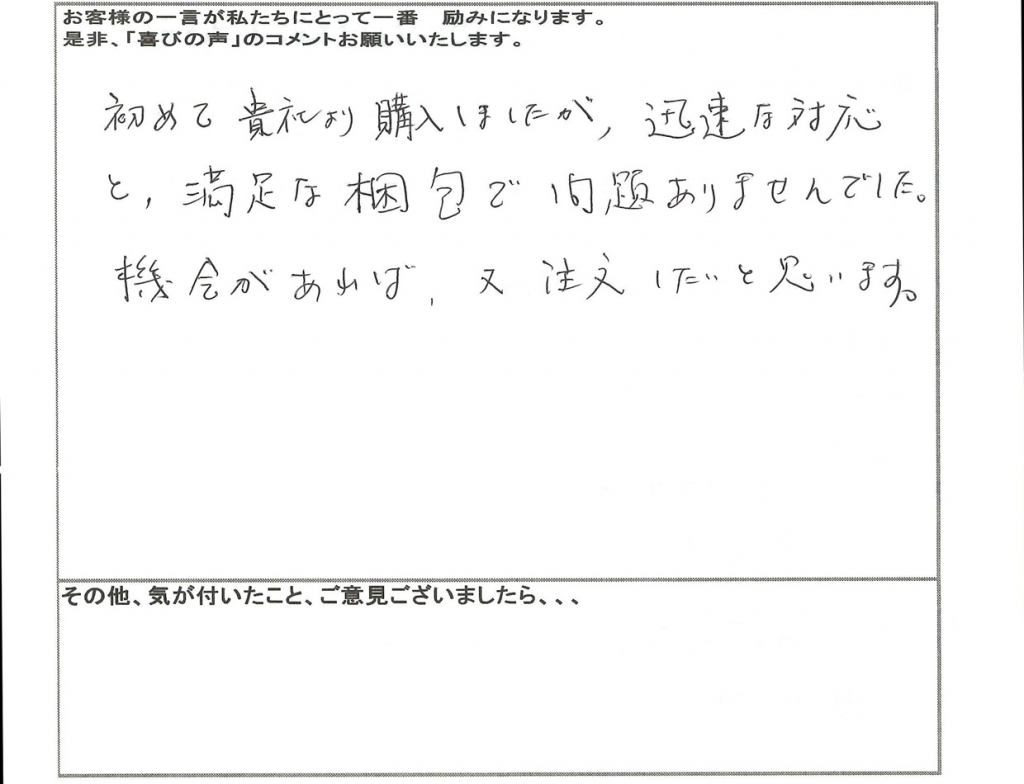 お客様の一言が私たちにとって一番　励みになります。
是非、「喜びの声」のコメントお願いいたします。
初めて貴社より購入しましたが、迅速な対応
と、満足な梱包で問題ありませんでした。
機会があれば、又注文したいと思います。
その他、気が付いたこと、ご意見ございましたら、、、